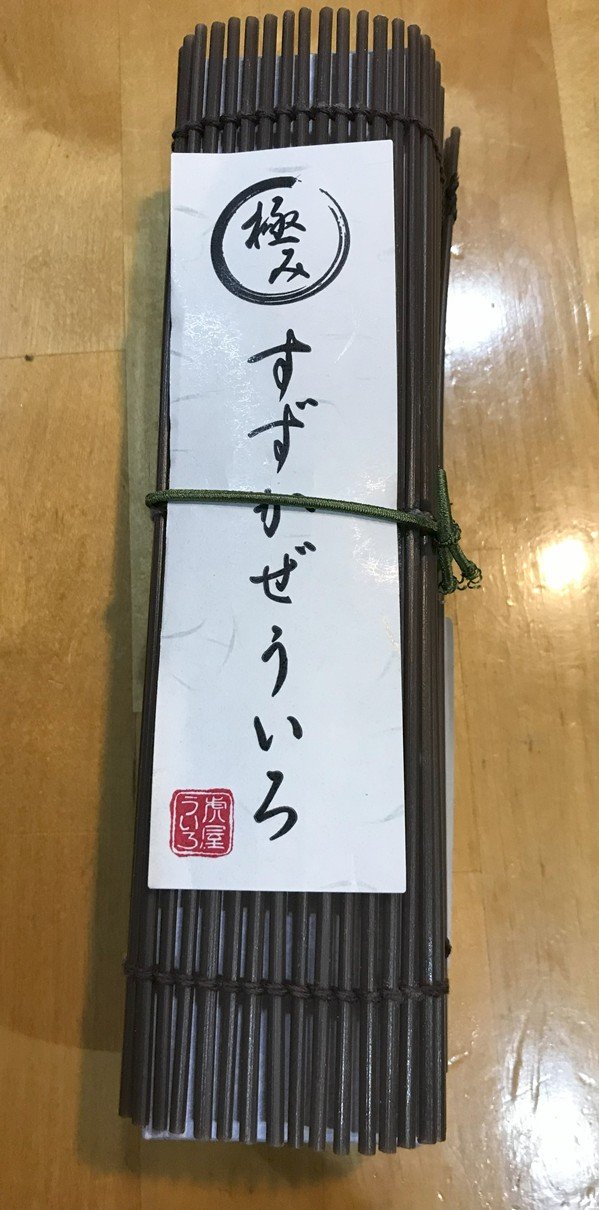 極み
すずかぜういろ
虎屋
ういろ